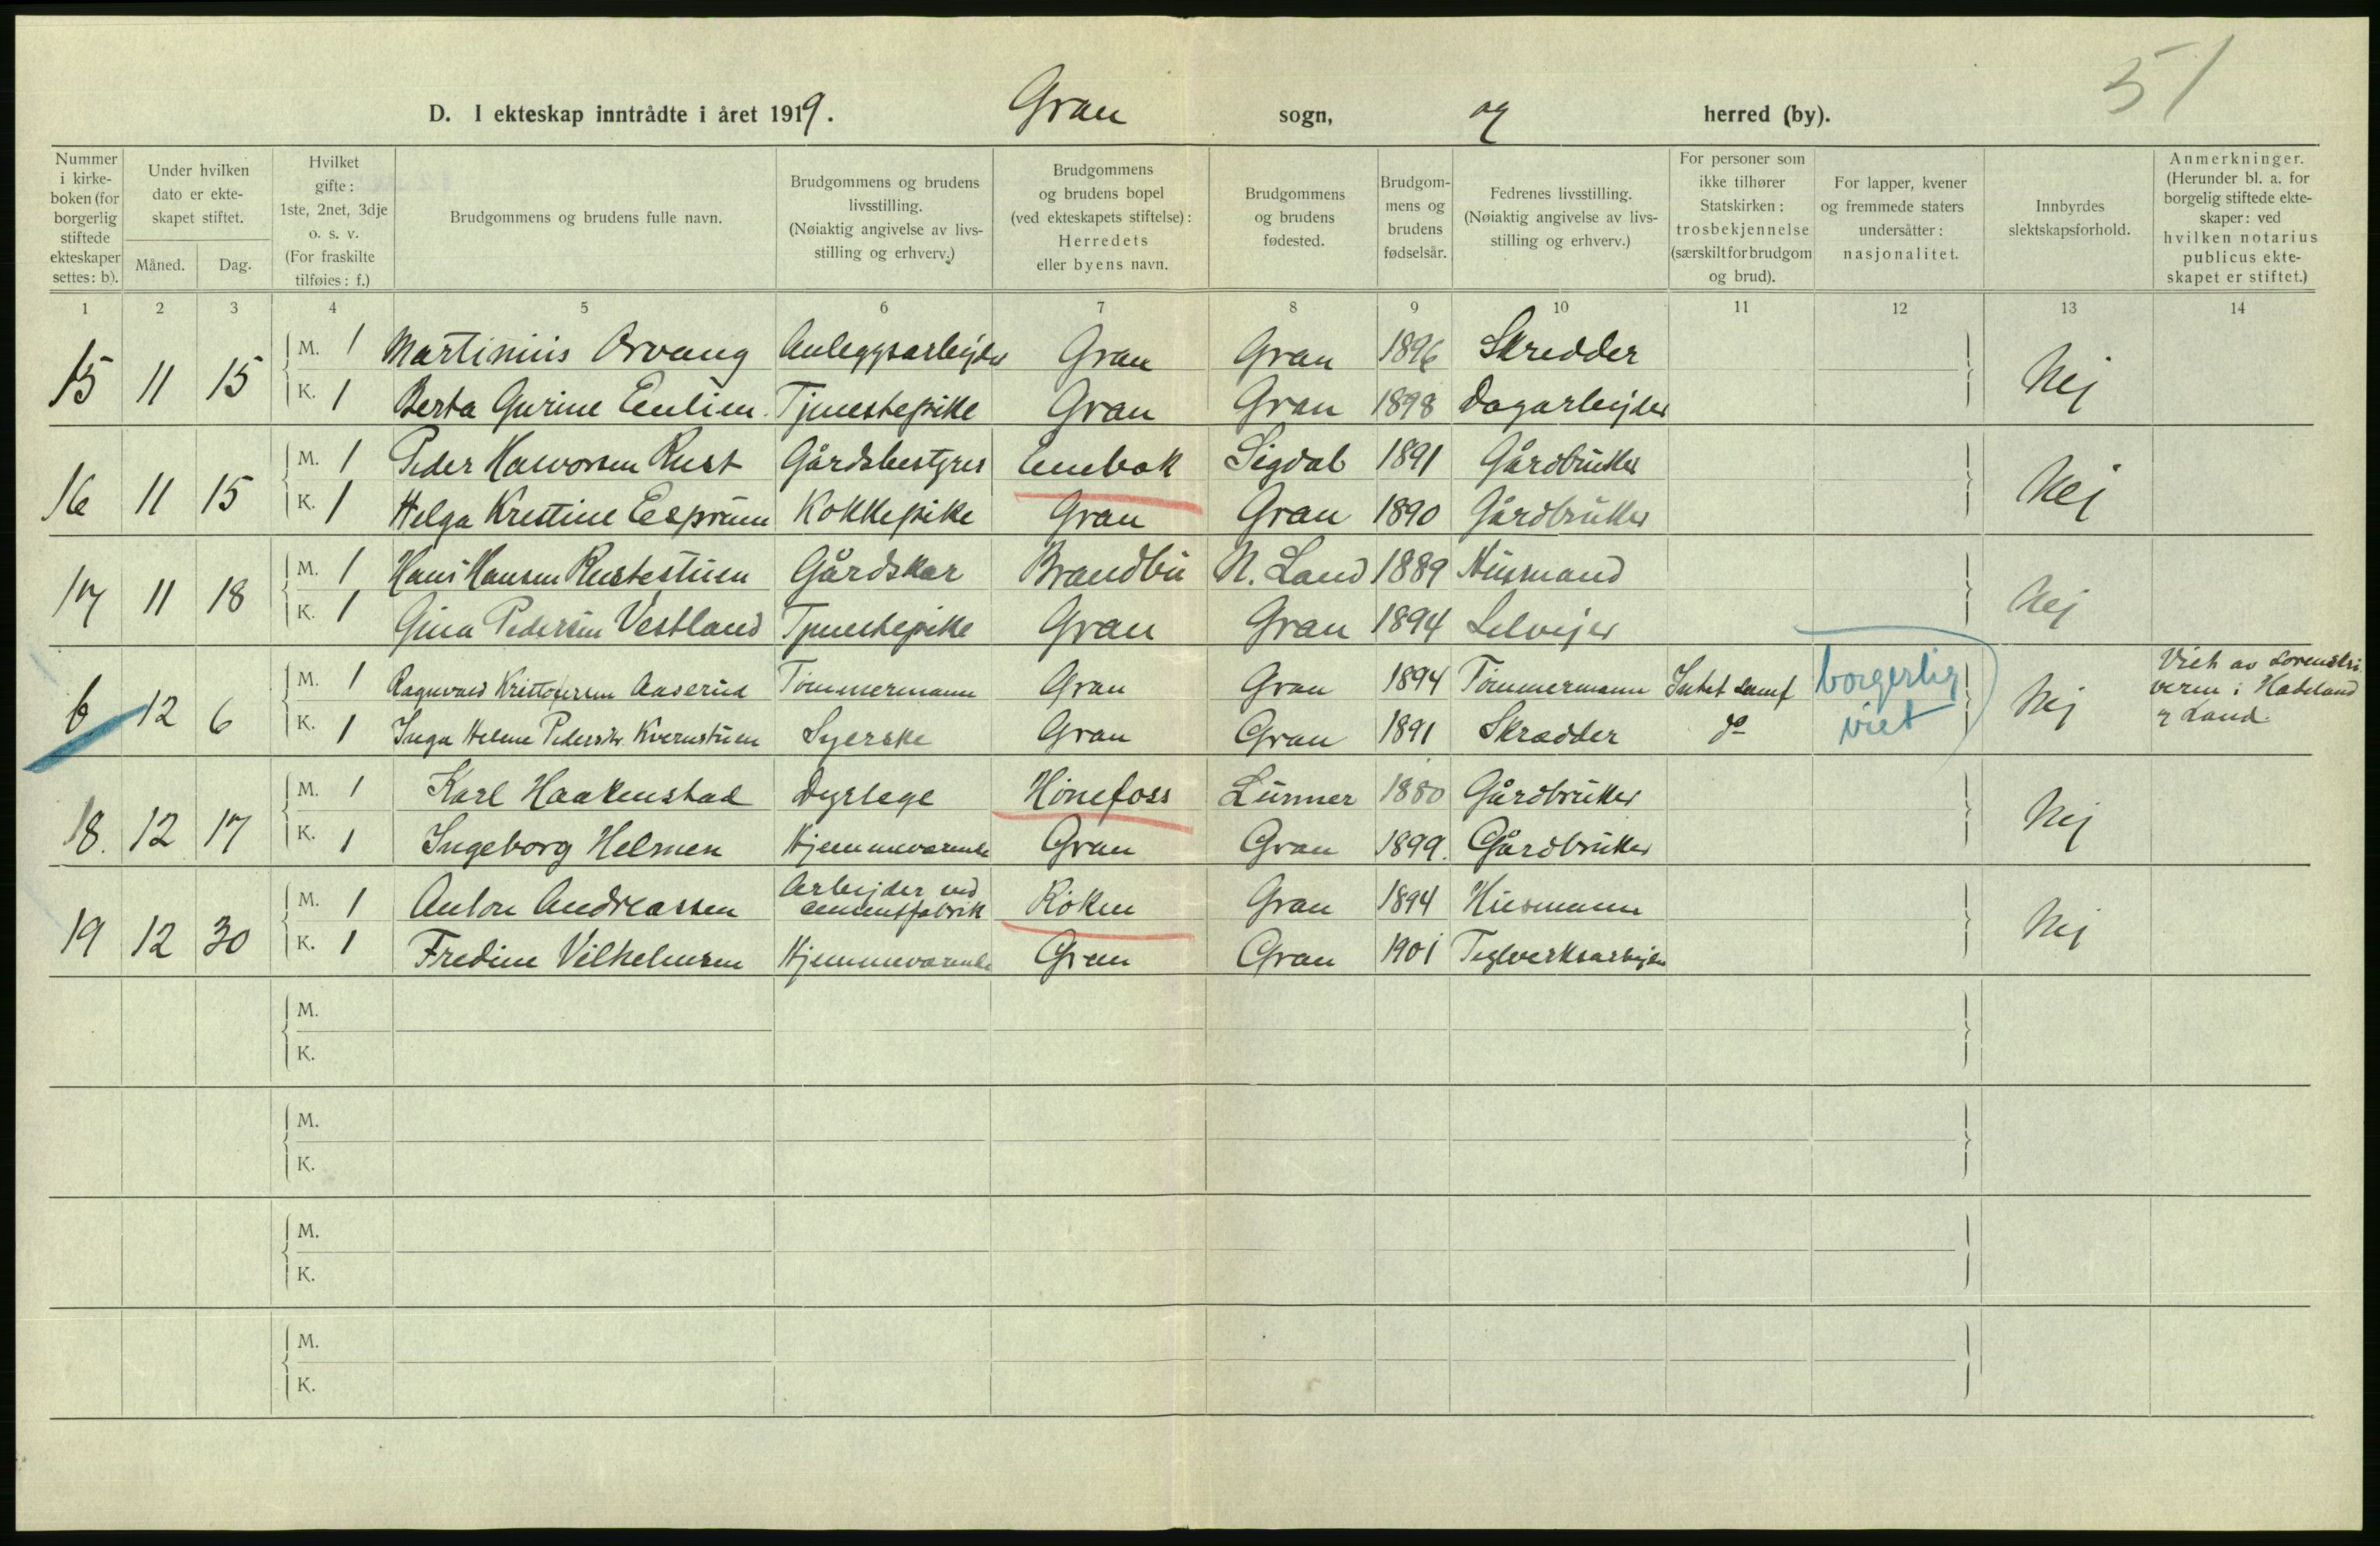 51
D. I ekteskap inntrådte i året 1919. Gran sogn, og herred (by).
Nummer i kirke-boken (for borgerlig stiftede ekteskaper settes: b).
Under hvilken dato er ekte-skapet stiftet.
Måned. Dag.
Hvilket gifte: 1ste, 2net, 3dje o. s. v. (For fraskilte tilføies: f.)
Brudgommens og brudens fulle navn.
Brudgommens og brudens livsstilling. (Nøiaktig angivelse av livs-stilling og erhverv.)
Brudgommens og brudens bopel (ved ekteskapets stiftelse): Herredets eller byens navn.
Brudgommens og brudens fødested.
Brudgom-mens og brudens fødselsår.
Fedrenes livsstilling. (Nøiaktig angivelse av livs-stilling og erhverv.)
For personer som ikke tilhører Statskirken: trosbekjennelse (særskilt for brudgom og brud).
For lapper, kvener og fremmede staters undersåtter: nasjonalitet.
Innbyrdes slektskapsforhold.
Anmerkninger. (Herunder bl. a. for borgelig stiftede ekte-skaper: ved hvilken notarius publicus ekte-skapet er stiftet.)
1 2 3 4 5 6 7 8 9 10 11 12 13 14
15 11 15 M. 1 Martinius Orvang Anleggsarbejder Gran Gran 1896 Skredder Nej
K. 1 Berta Gurine Enlien Tjenestepike Gran Gran 1898 Dagarbejder
16 11 15 M. 1 Peder Halvorsen Rust Gårdsbestyrer Enebak Sigdal 1891 Gårdbruker Nej
K. 1 Helga Kristine Kokkepike Gran Gran 1890 Gårdbruker
17 11 18 M. 1 Hans Hansen Rustestuen Gårdskar Brandbu N. Land 1889 Husmand Nej
K. 1 Gina Pedersen Vestland Tjenestepike Gran Gran 1894 Selvejer
b 12 6 M. 1 Ragnvald Kristofersen Aaserud Tömmermann Gran Gran 1894 Tömmermann Intet samf borgerlig viet Nej Viet av Sorenskri
veren i Hadeland
og Land.
K. 1 Inga Helene Pedersdr. Kvernstuen Syerske Gran Gran 1891 Skrædder do
18. 12 17 M. 1 Karl Haakenstad Dyrlege Hönefoss Lunner 1880 Gårdbruker Nej
K. 1 Ingeborg Helmen Hjemmeværende Gran Gran 1899. Gårdbruker
19 12 30 M. 1 Anton Andreassen Arbejder ved cementfabrik Röken Gran 1894 Husmann Nej
K. 1 Fredine Vilhelmsen Hjemmeværende Gran Gran 1901 Teglverksarbejder
M.
K.
M.
K.
M.
K.
M.
K.